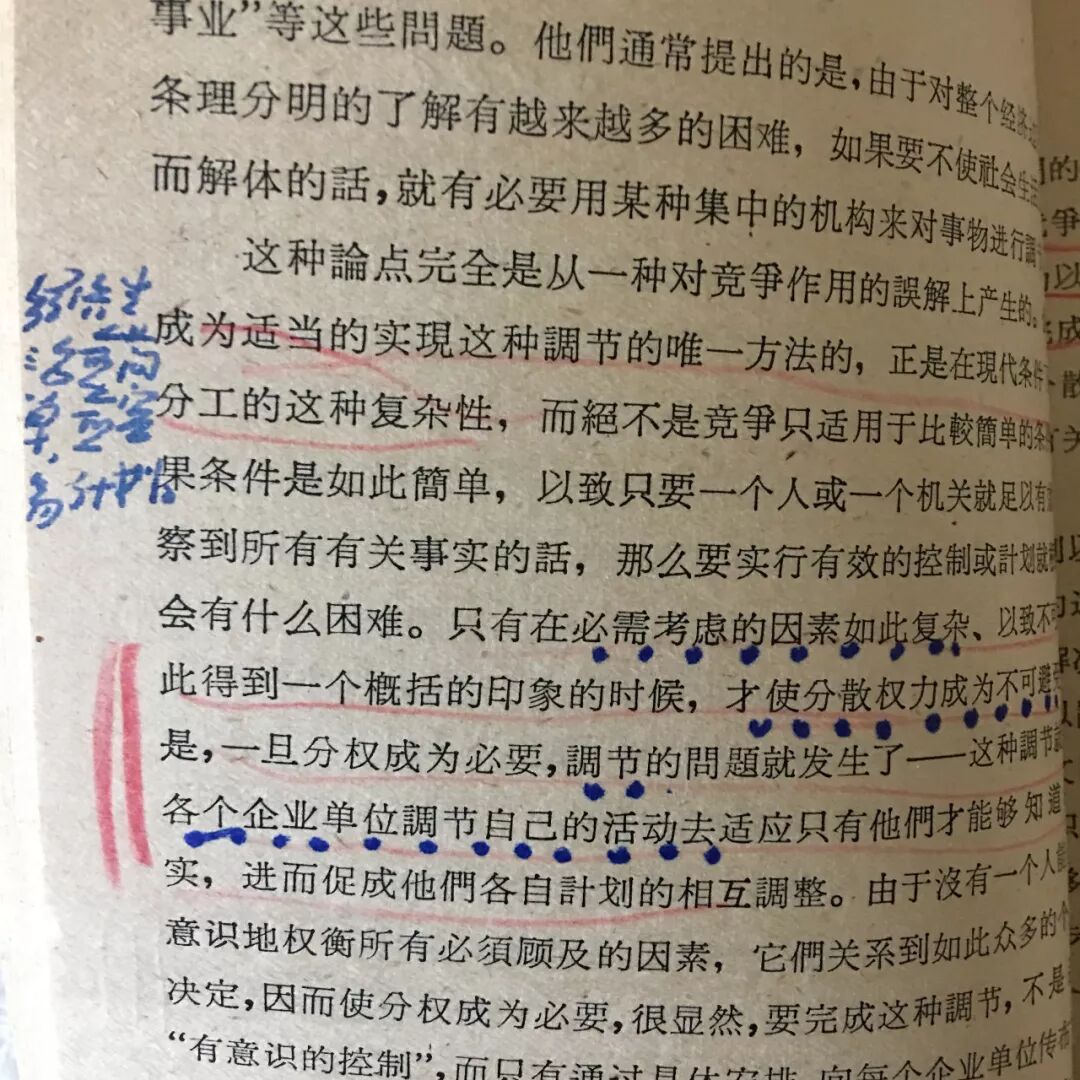 事业”等这些問題。他們通常提出的是，由于对整个经济
条理分明的了解有越来越多的困难，如果要不使社会生
而解体的話，就有必要用某种集中的机构来对事物进行調
这种論点完全是从一种对竞爭作用的誤解上产生的。
成为适当的实現这种調节的唯一方法的，正是在現代条件
分工的这种复杂性，而絕不是竞爭只适用于比較簡单的条
果条件是如此簡单，以致只要一个人或一个机关就足以有
察到所有有关事实的話，那么要实行有效的控制或計划就
会有什么困难。只有在必需考虑的因素如此复杂、以致不可
此得到一个概括的印象的时候，才使分散权力成为不可避
是，一旦分权成为必要，調节的問題就发生了——这种調节
各个企业单位調节自己的活动去适应只有他們才能够知道
实，进而促成他們各自計划的相互調整。由于沒有一个人
意识地权衡所有必須顾及的因素，它們关系到如此众多的个
决定，因而使分权成为必要，很显然，要完成这种調节，不是
“有意识的控制”，而只有通过具体安排，向每个企业单位传